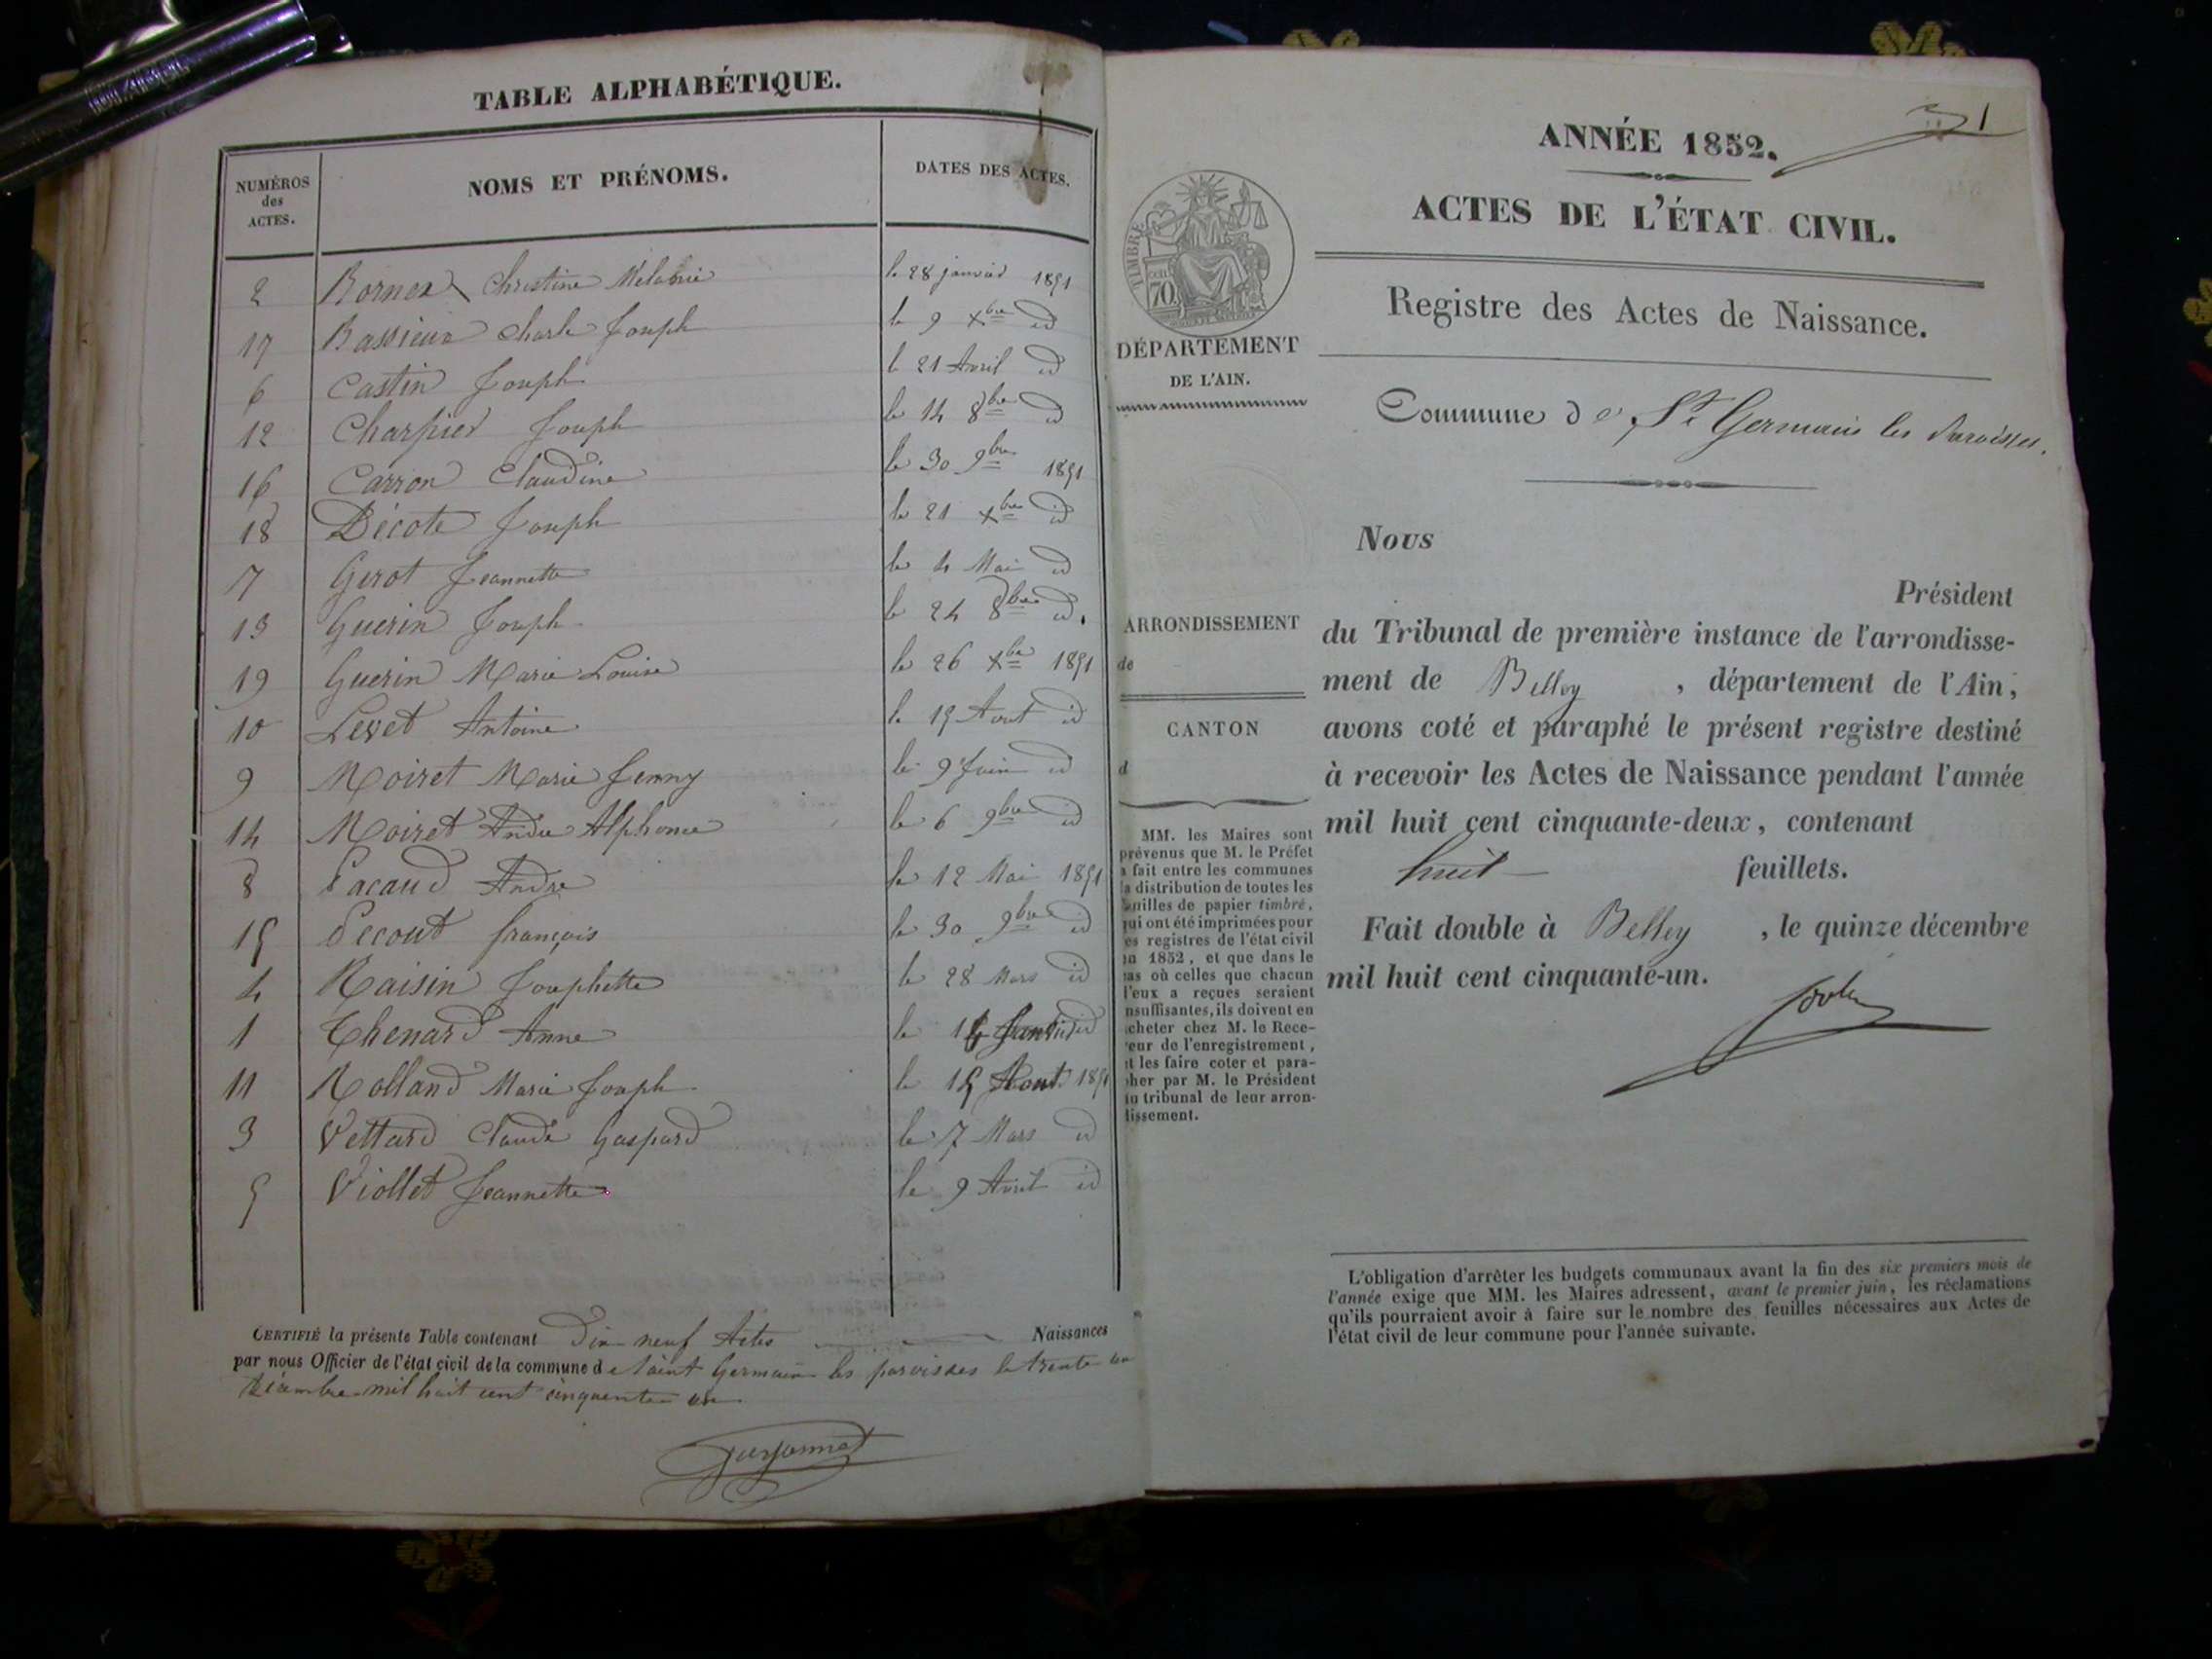 TABLE ALPHABÉTIQUE.
NUMÉROS des ACTES. NOMS ET PRÉNOMS. DATES DES ACTES.
2 Bornex Christine Mélanie le 28 janvier 1851
17 Bassieux Charle Joseph le 9 Xbre id
6 Castin Joseph le 21 Avril id
12 Charpier Joseph le 14 8bre id
16 Carron Claudine le 30 9bre 1851
18 Décote Joseph le 21 Xbre id
7 Gerot Jeannette le 4 Mai id
13 Guerin Joseph le 24 8bre id.
19 Guerin Marie Louise le 26 Xbre 1851
10 Levet Antoine le 15 Aout id
9 Moiret Marie Jenny le 9 Juin id
14 Moiret André Alphonse le 6 9bre id
8 Pacaud André le 12 Mai 1851
15 Pecout françois le 30 9bre id
4 Raisin Josephette le 28 Mars id
1 Thenard Anne le Janvier id
11 Rolland Marie Joseph le 15 Aout 1851
3 Vettard Claude Gaspard le 7 Mars id
5 Viollet Jeannette le 9 Avril id
CERTIFIÉ la présente Table contenant Dix neuf Actes Naissances
par nous Officier de l'état civil de la commune de Saint Germain les paroisses le trente un
Décembre mil huit cent cinquante un
1
ANNÉE 1852.
ACTES DE L'ÉTAT CIVIL.
Registre des Actes de Naissance.
TIMBRE
70
DÉPARTEMENT
DE L'AIN.
Commune de St Germain les Paroisses.
Nous
Président
du Tribunal de première instance de l'arrondisse-
ment de Belley, département de l'Ain,
avons coté et paraphé le présent registre destiné
à recevoir les Actes de Naissance pendant l'année
mil huit cent cinquante-deux, contenant
huit feuillets.
Fait double à Belley, le quinze décembre
mil huit cent cinquante-un.
ARRONDISSEMENT
de
CANTON
d
MM. les Maires sont
prévenus que M. le Préfet
a fait entre les communes
la distribution de toutes les
feuilles de papier timbré,
qui ont été imprimées pour
les registres de l'état civil
en 1852, et que dans le
cas où celles que chacun
d'eux a reçues seraient
insuffisantes, ils doivent en
acheter chez M. le Rece-
veur de l'enregistrement,
et les faire coter et para-
pher par M. le Président
du tribunal de leur arron-
dissement.
L'obligation d'arrêter les budgets communaux avant la fin des six premiers mois de
l'année exige que MM. les Maires adressent, avant le premier juin, les réclamations
qu'ils pourraient avoir à faire sur le nombre des feuilles nécessaires aux Actes de
l'état civil de leur commune pour l'année suivante.